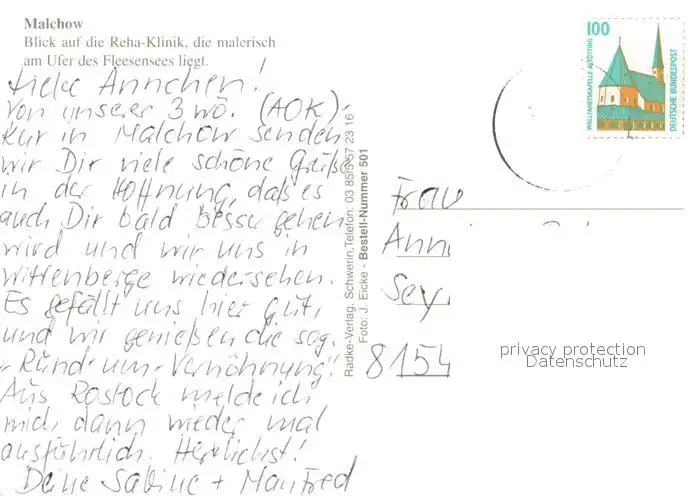 Malchow
Blick auf die Reha-Klinik, die malerisch
am Ufer des Fleesensees liegt.
Liebe Ännchen!
Von unserer 3 wö. (AOK)-
Kur in Malchow senden
wir Dir viele schöne Grüße
in der Hoffnung, daß es
auch Dir bald besser gehen
wird und wir uns in
Wittenberge wiedersehen.
Es gefällt uns hier gut,
und wir genießen die sog.
"Rund-um-Verwöhnung!"
Aus Rostock melde ich
mich dann wieder mal
ausführlich. Herzlichst!
Deine Sabine + Manfred
Radke-Verlag, Schwerin, Telefon: 03 85/5 57 23 16
Foto: J. Eicke - Bestell-Nummer 501
100
WALLFAHRTSKAPELLE ALTÖTTING
DEUTSCHE BUNDESPOST
Frau
Ann
Sey
8154
privacy protection
Datenschutz